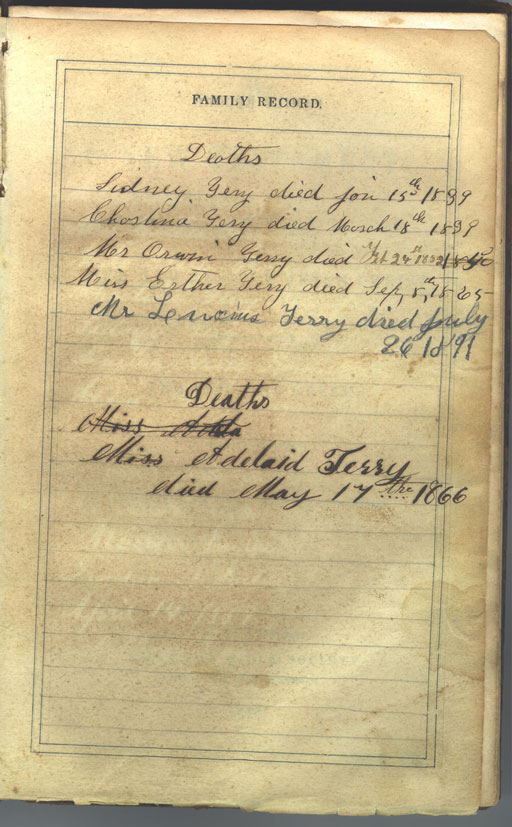 FAMILY RECORD.
Deaths
Sidney Gery died jan 15th 1839
Chostina Gery died March 18th 1839
Mr Orwin Gerry died Feb 24th 1852
Miss Esther Gery died Sep, 5th, 1865
Mr Lenoius Terry died July
26 1891
Deaths
Miss
Miss Adelaid Terry
died May 17 the 1866
April 14